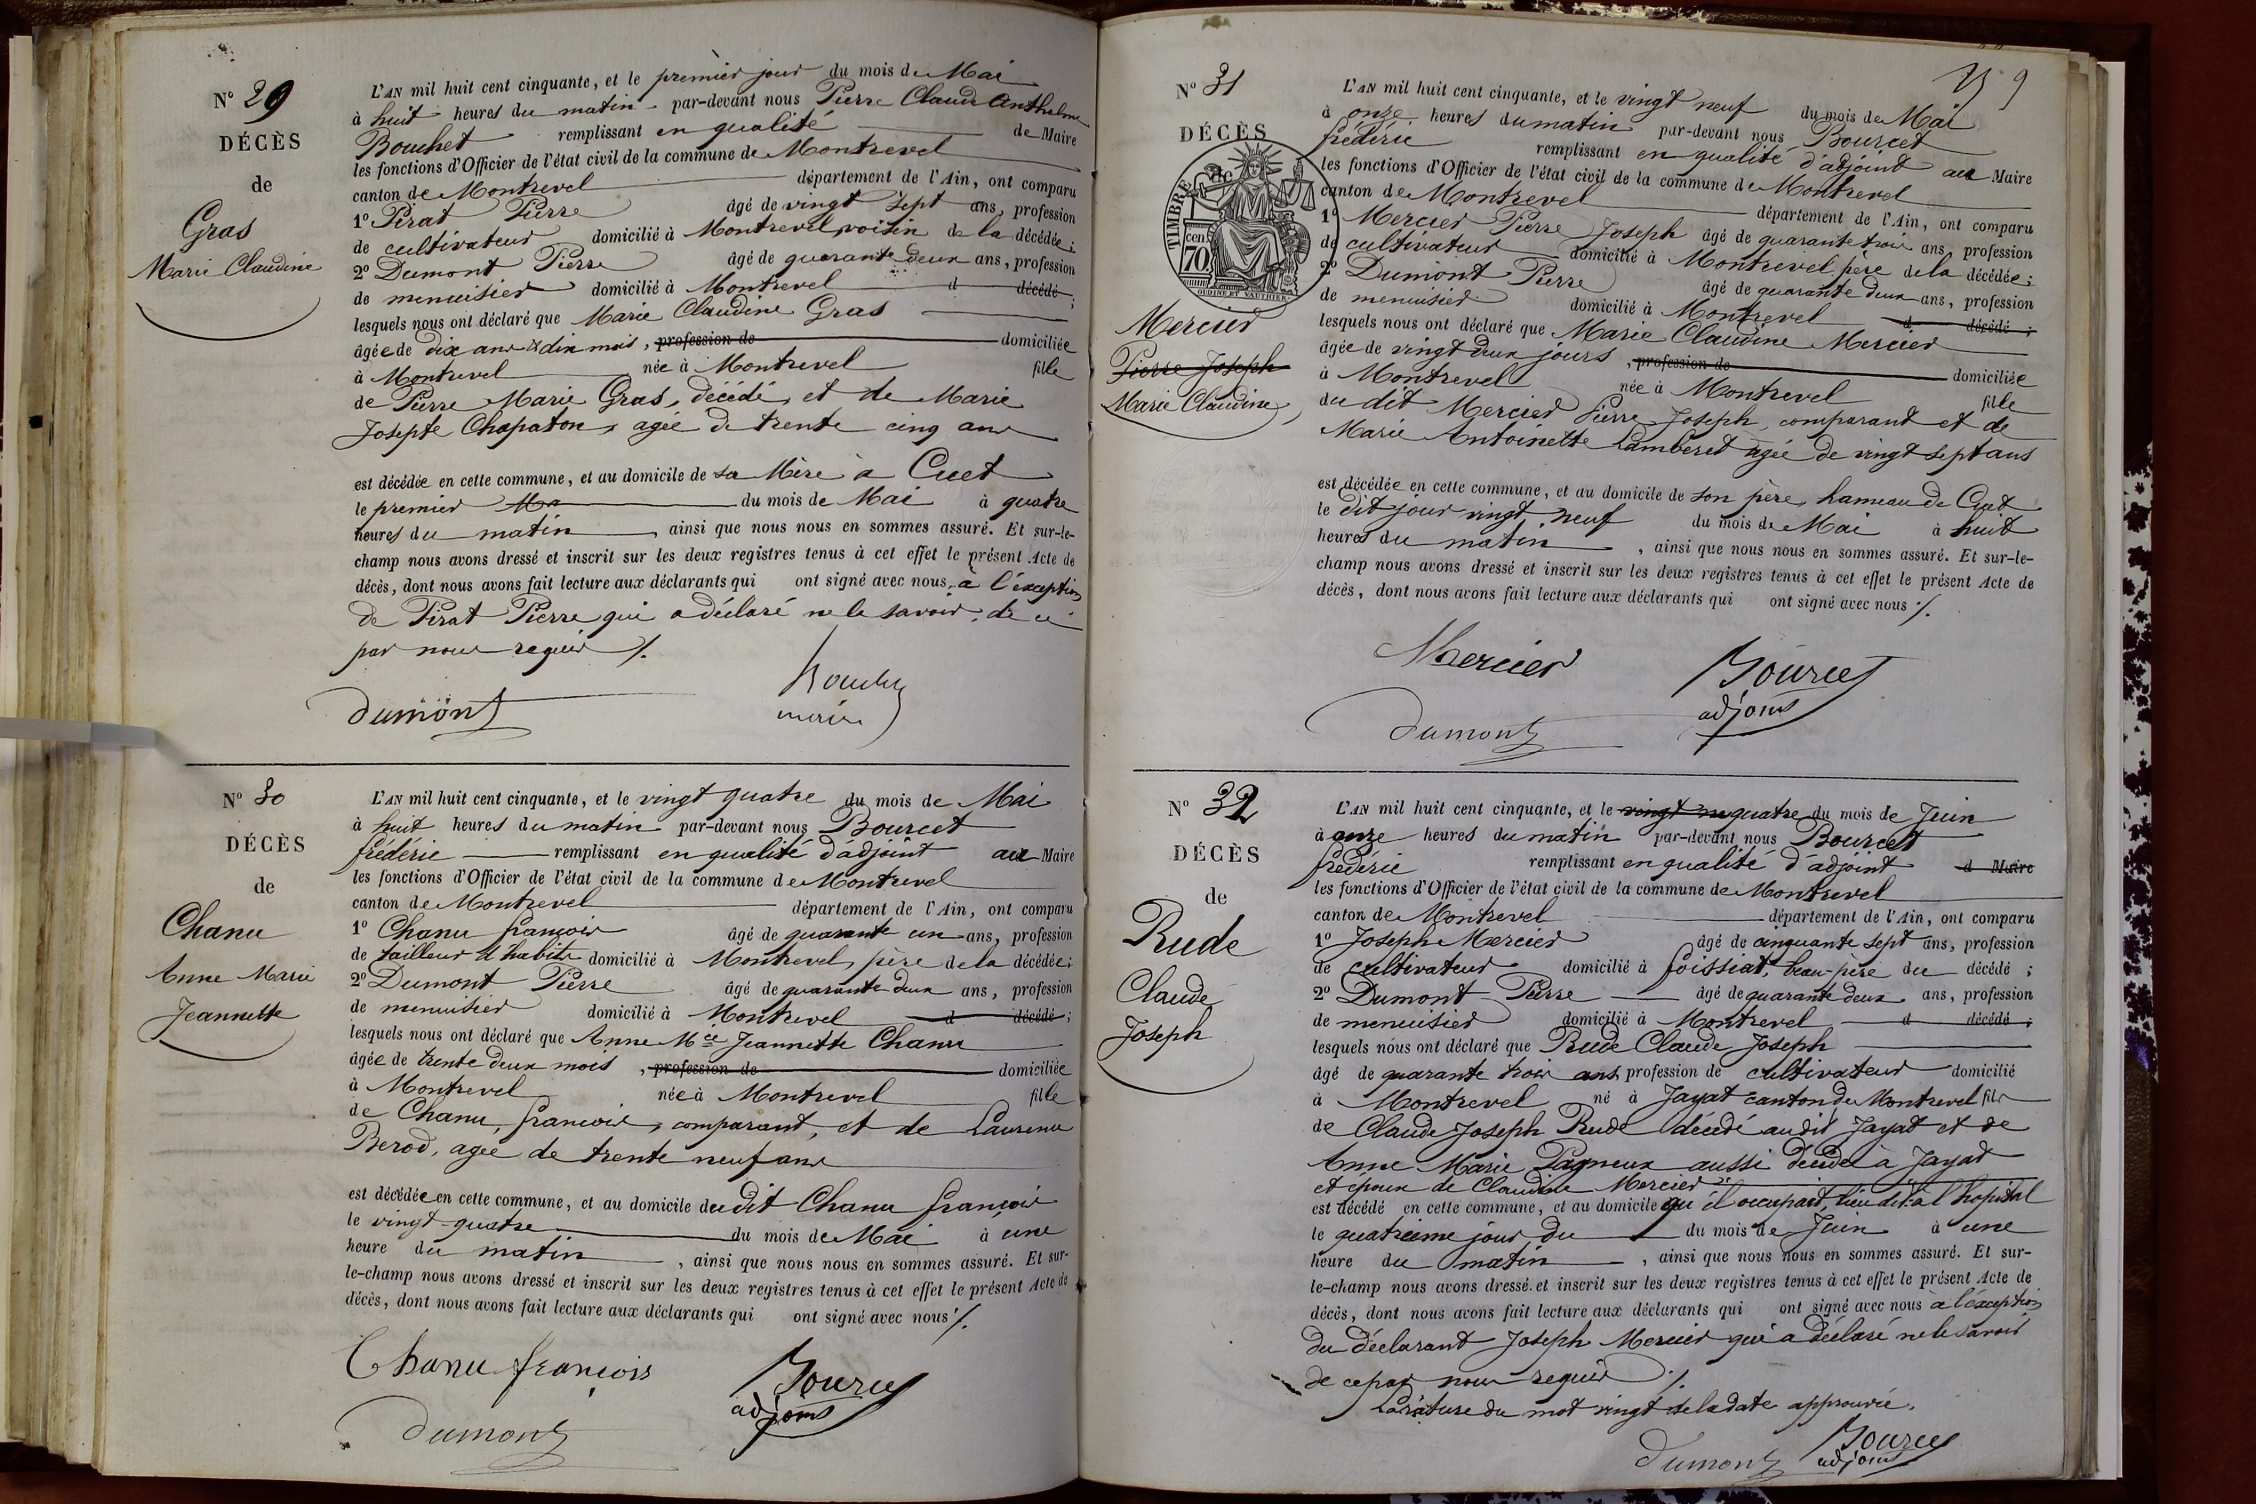 N° 29
DÉCÈS
de
Gras
Marie Claudine
L'AN mil huit cent cinquante, et le premier jour du mois de Mai
à huit heures du matin par-devant nous Pierre Claude Anthelme
Bouchet remplissant en qualité de Maire
les fonctions d'Officier de l'état civil de la commune de Montrevel
canton de Montrevel département de l'Ain, ont comparu
1° Pirat Pierre âgé de vingt sept ans, profession
de cultivateur domicilié à Montrevel, voisin de la décédée;
2° Dumont Pierre âgé de quarante deux ans, profession
de menuisier domicilié à Montrevel d décédé;
lesquels nous ont déclaré que Marie Claudine Gras
âgée de dix ans & dix mois, profession de domiciliée
à Montrevel née à Montrevel fille
de Pierre Marie Gras, décédé, et de Marie
Josepte Chapaton, agée de trente cinq ans
est décédée en cette commune, et au domicile de sa Mère à Cuet
le premier Ma du mois de Mai à quatre
heures du matin, ainsi que nous nous en sommes assuré. Et sur-le-
champ nous avons dressé et inscrit sur les deux registres tenus à cet effet le présent Acte de
décès, dont nous avons fait lecture aux déclarants qui ont signé avec nous, à l'éxception
de Pirat Pierre qui a déclaré ne le savoir, de ce
par nous requis ./.
Dumont
Bouchet
maire
N° 30
DÉCÈS
de
Chanu
Anne Marie
Jeannette
L'AN mil huit cent cinquante, et le vingt quatre du mois de Mai
à huit heures du matin par-devant nous Bourcet
frédéric remplissant en qualité d'adjoint au Maire
les fonctions d'Officier de l'état civil de la commune de Montrevel
canton de Montrevel département de l'Ain, ont comparu
1° Chanu françois âgé de quarante un ans, profession
de tailleur d'habits domicilié à Montrevel, père de la décédée;
2° Dumont Pierre âgé de quarante deux ans, profession
de menuisier domicilié à Montrevel d décédé;
lesquels nous ont déclaré que Anne Mie Jeannette Chanu
âgée de trente deux mois, profession de domiciliée
à Montrevel née à Montrevel fille
de Chanu, françois, comparant, et de Laurence
Berod, agée de trente neuf ans
est décédée en cette commune, et au domicile du dit Chanu françois
le vingt-quatre du mois de Mai à une
heure du matin, ainsi que nous nous en sommes assuré. Et sur-
le-champ nous avons dressé et inscrit sur les deux registres tenus à cet effet le présent Acte de
décès, dont nous avons fait lecture aux déclarants qui ont signé avec nous ./.
Chanu françois
Bourcet
adjoint
Dumont
59
N° 31
DÉCÈS
de
TIMBRE
cen.
70
OUDINÉ ET VAUTHIER
Mercier
Pierre Joseph
Marie Claudine
L'AN mil huit cent cinquante, et le vingt neuf du mois de Mai
à onze heures du matin par-devant nous Bourcet
frédéric remplissant en qualité d'adjoint au Maire
les fonctions d'Officier de l'état civil de la commune de Montrevel
canton de Montrevel département de l'Ain, ont comparu
1° Mercier Pierre Joseph âgé de quarante trois ans, profession
de cultivateur domicilié à Montrevel, père de la décédée;
2° Dumont Pierre âgé de quarante deux ans, profession
de menuisier domicilié à Montrevel d décédé;
lesquels nous ont déclaré que Marie Claudine Mercier
âgée de vingt deux jours, profession de domiciliée
à Montrevel née à Montrevel fille
du dit Mercier Pierre Joseph, comparant et de
Marie Antoinette Lamberet agée de vingt sept ans
est décédée en cette commune, et au domicile de son père, hameau de Cuet
le dit jour vingt neuf du mois de Mai à huit
heures du matin, ainsi que nous nous en sommes assuré. Et sur-le-
champ nous avons dressé et inscrit sur les deux registres tenus à cet effet le présent Acte de
décès, dont nous avons fait lecture aux déclarants qui ont signé avec nous ./.
Mercier
Bourcet
adjoint
Dumont
N° 32
DÉCÈS
de
Rude
Claude
Joseph
L'AN mil huit cent cinquante, et le vingt quatre du mois de Juin
à onze heures du matin par-devant nous Bourcet
frédéric remplissant en qualité d'adjoint d Maire
les fonctions d'Officier de l'état civil de la commune de Montrevel
canton de Montrevel département de l'Ain, ont comparu
1° Joseph Mercier âgé de cinquante sept ans, profession
de cultivateur domicilié à foissiat, beau-père du décédé;
2° Dumont Pierre âgé de quarante deux ans, profession
de menuisier domicilié à Montrevel d décédé;
lesquels nous ont déclaré que Rude Claude Joseph
âgé de quarante trois ans profession de cultivateur domicilié
à Montrevel né à Jayat canton de Montrevel fils
de Claude Joseph Rude décédé au dit Jayat et de
Anne Marie Pagneux aussi décédée à Jayat
et époux de Claudine Mercier
est décédé en cette commune, et au domicile qu'il occupait, lieu dit à l'hopital
le quatrième jour du du mois de Juin à une
heure du matin, ainsi que nous nous en sommes assuré. Et sur-
le-champ nous avons dressé et inscrit sur les deux registres tenus à cet effet le présent Acte de
décès, dont nous avons fait lecture aux déclarants qui ont signé avec nous à l'éxception
du déclarant Joseph Mercier qui a déclaré ne le savoir
de ce par nous requis ./.
La rature du mot vingt de la date approuvée.
Dumont
Bourcet
adjoint